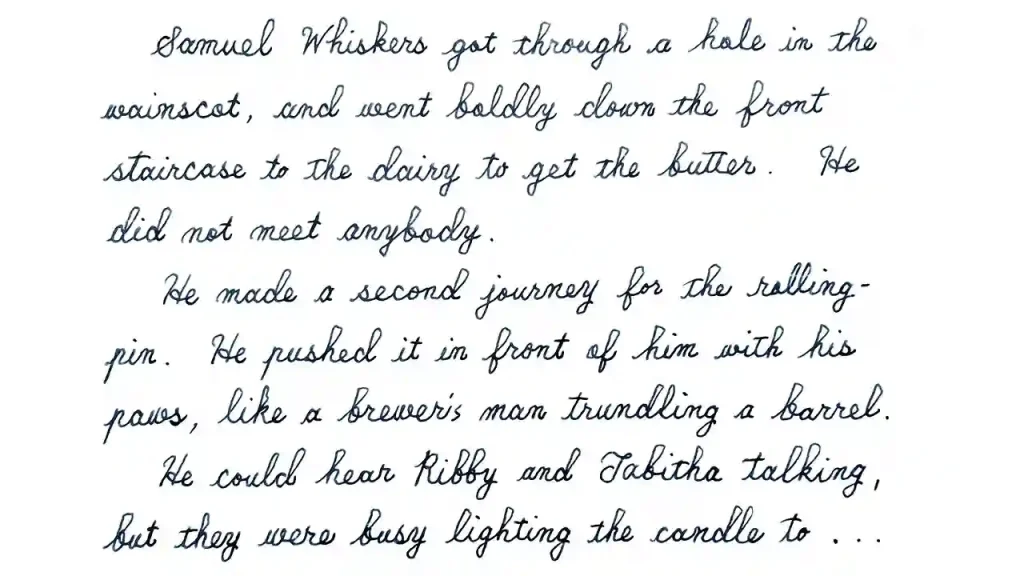 Samuel Whiskers got through a hole in the
wainscot, and went boldly down the front
staircase to the dairy to get the butter. He
did not meet anybody.
He made a second journey for the rolling-
pin. He pushed it in front of him with his
paws, like a brewer's man trundling a barrel.
He could hear Ribby and Tabitha talking,
but they were busy lighting the candle to ...